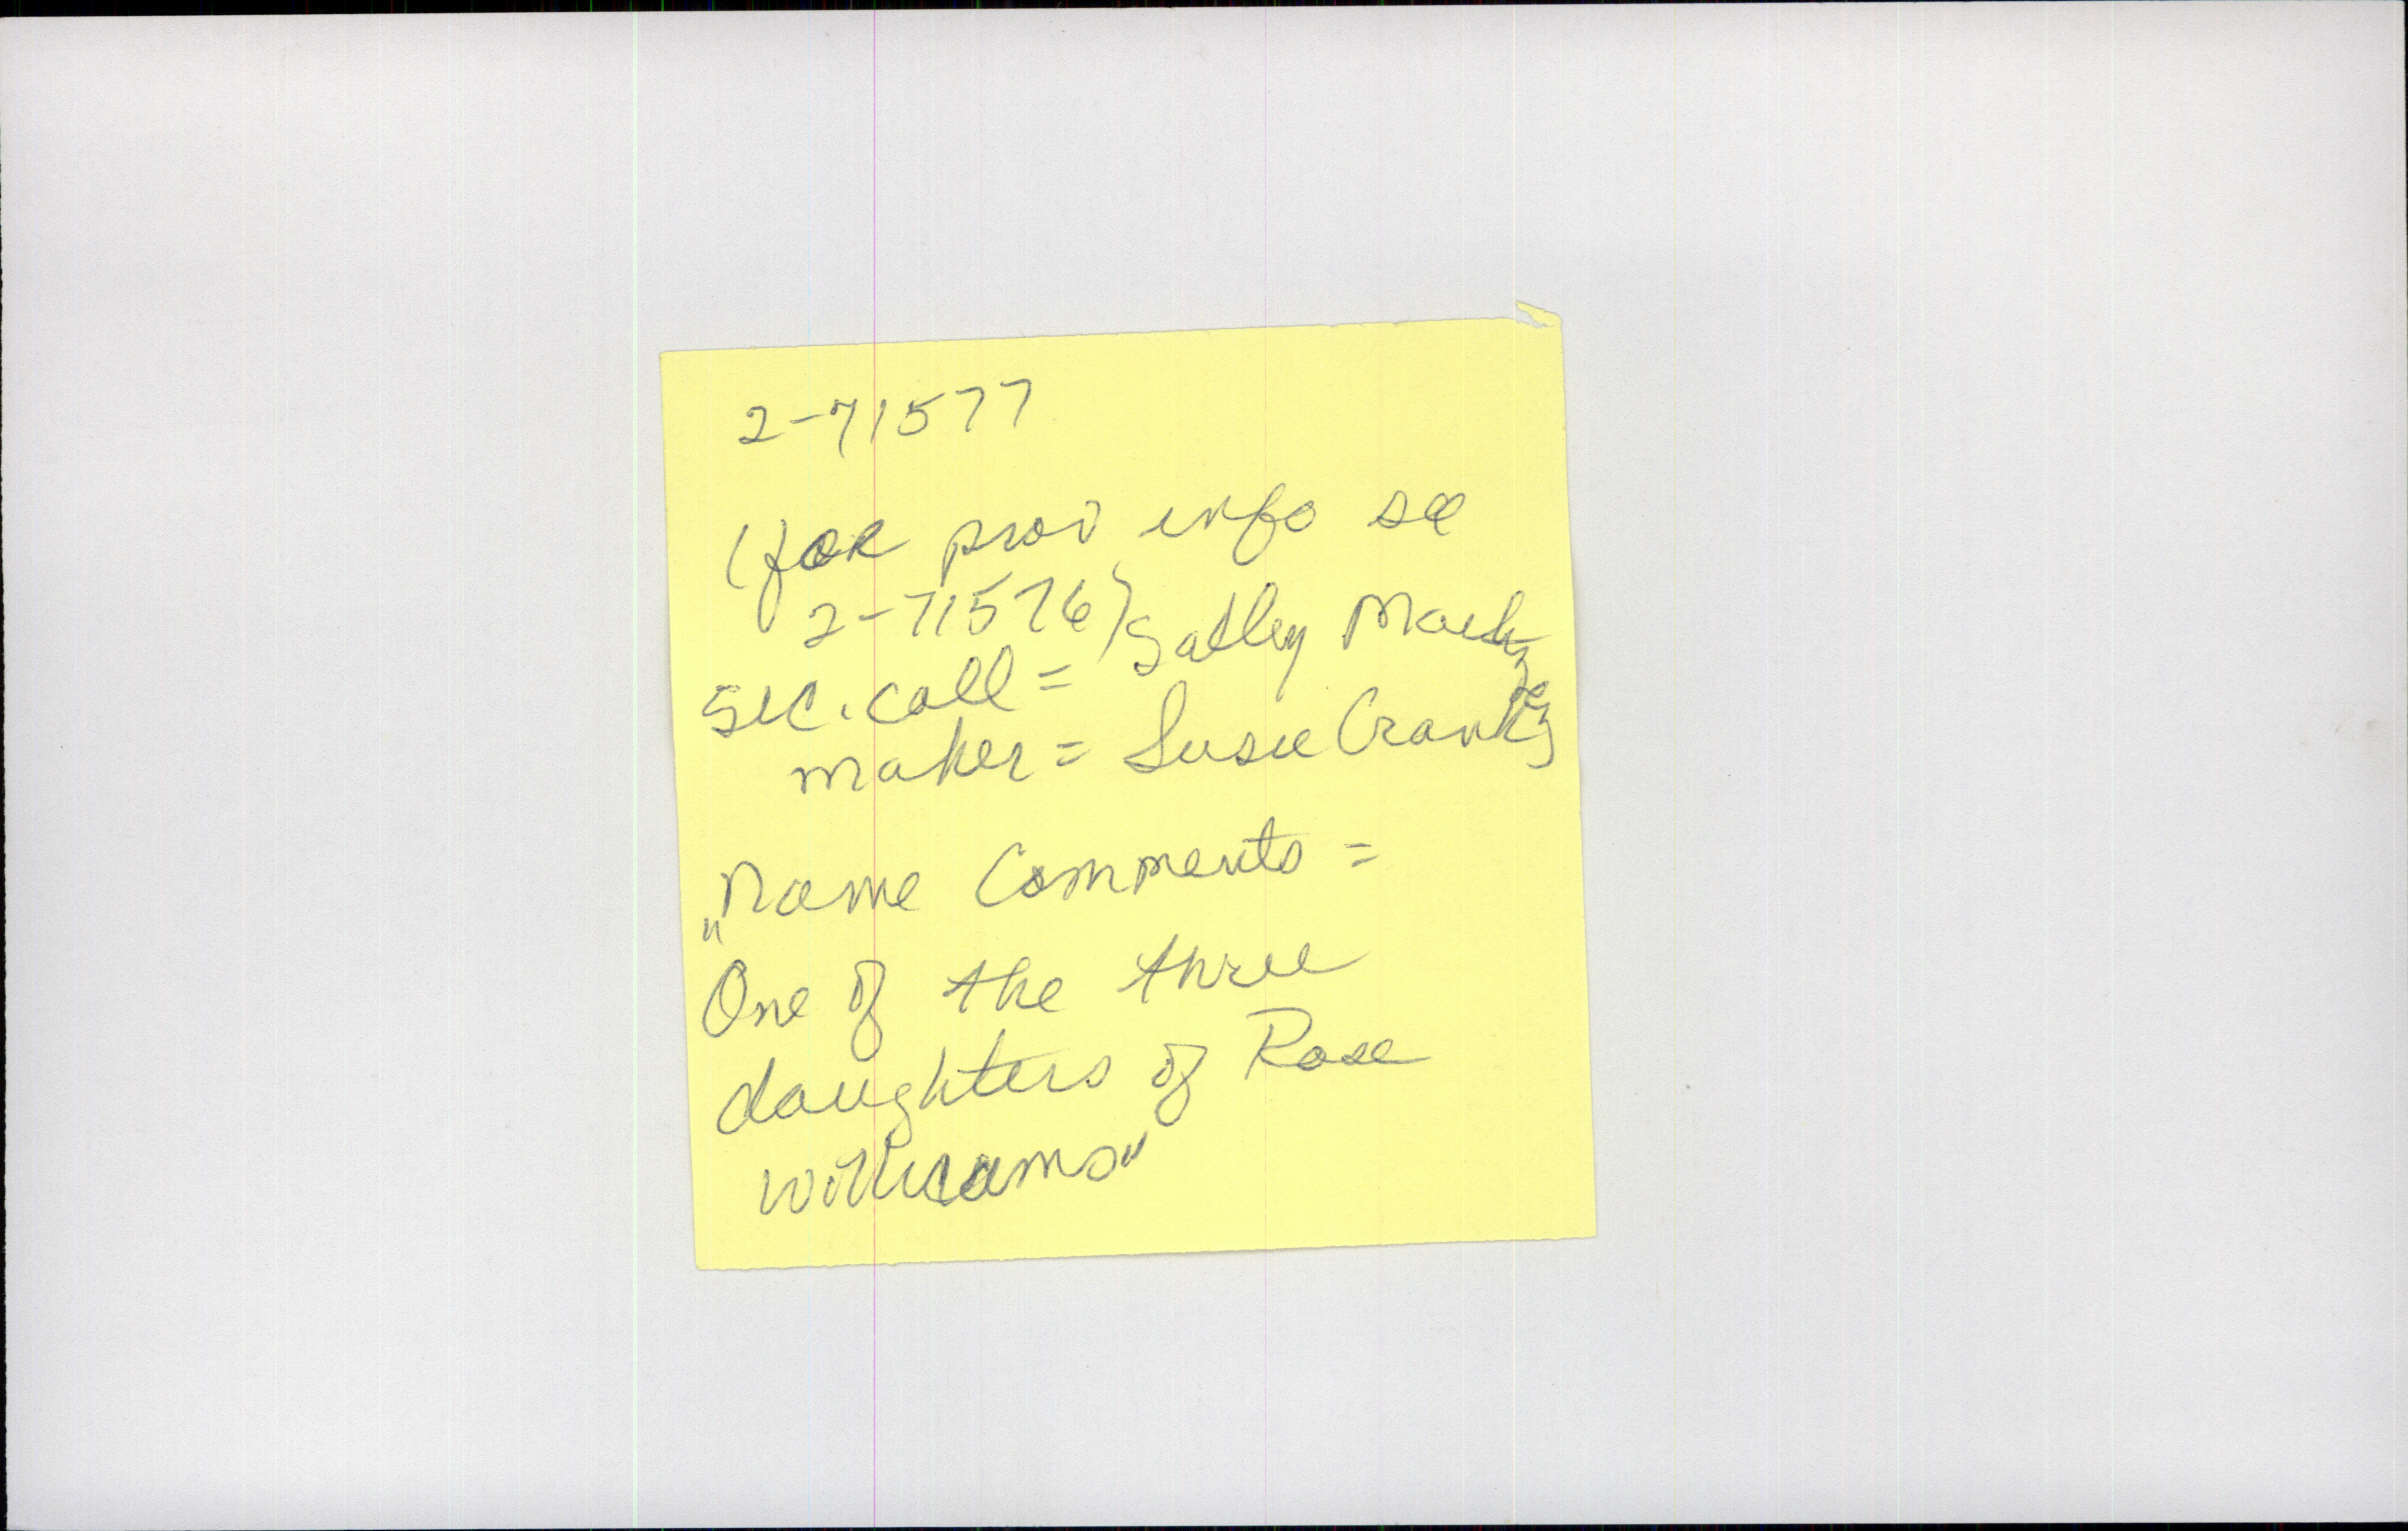 2-71577
(for prov info see
2-71576)
sec. call = Salley Mach
maker = Susie Crank
"Name Comments =
One of the three
daughters of Rose
Williams"